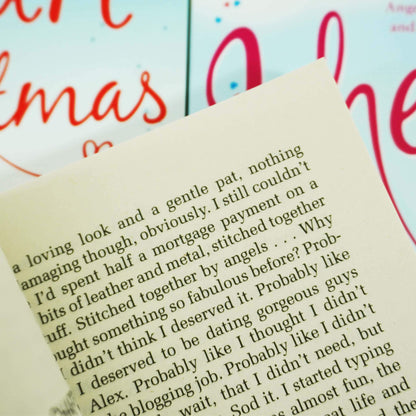 tmas
Ange
and
a loving look and a gentle pat, nothing
amaging though, obviously. I still couldn't
I'd spent half a mortgage payment on a
bits of leather and metal, stitched together
uff. Stitched together by angels . . . Why
ught something so fabulous before? Prob-
didn't think I deserved it. Probably like
I deserved to be dating gorgeous guys
Alex. Probably like I thought I didn't
blogging job. Probably like I didn't
wait, that I didn't need, but
God it. I started typing
almost fun, the
life and